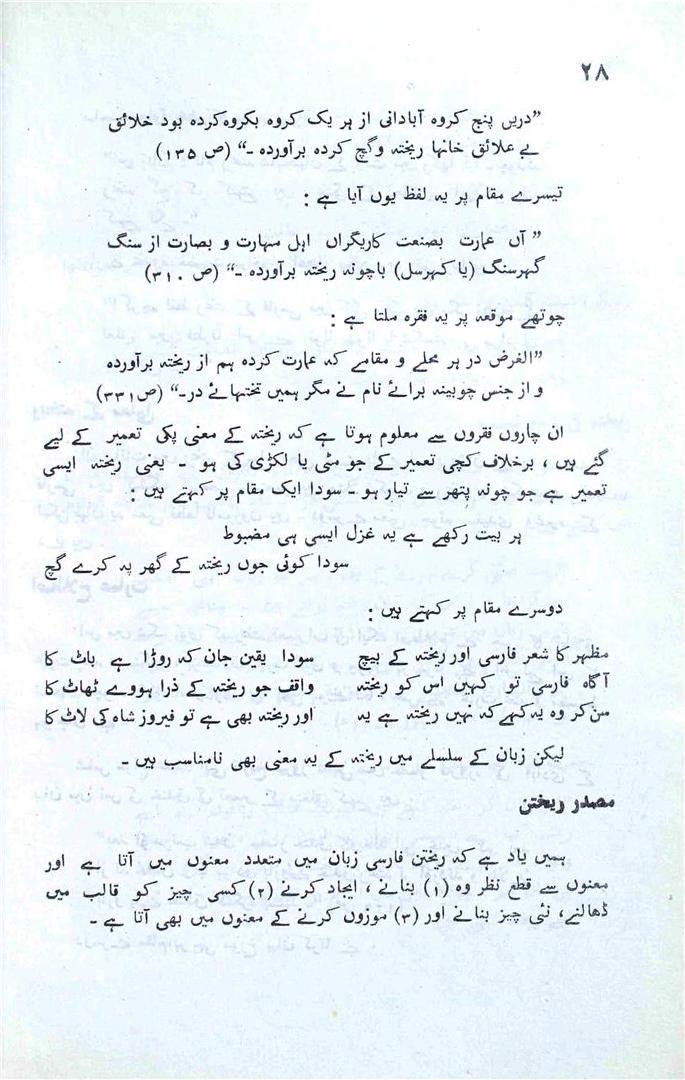 ۲۸
”دریں پنج کروہ آبادانی از ہر یک کروہ بکروہ کردہ بود خلائق
بے علائق خانہا ریختہ وگچ کردہ برآوردہ ۔“ (ص ۱۳۵)
تیسرے مقام پر یہ لفظ یوں آیا ہے :
” آں عمارت بصنعت کاریگراں اہل مہارت و بصارت از سنگ
گہرسنگ (یا کہرسل) باچونہ ریختہ برآوردہ ۔“ (ص ۳۱۰)
چوتھے موقعہ پر یہ فقرہ ملتا ہے :
”الغرض در ہر محلے و مقامے کہ عمارت کردہ ہم از ریختہ برآوردہ
و از جنس چوبینہ برائے نام نے مگر ہمیں تختہائے در۔“ (ص ۳۳۱)
ان چاروں فقروں سے معلوم ہوتا ہے کہ ریختہ کے معنی پکی تعمیر کے لیے
گئے ہیں ، برخلاف کچی تعمیر کے جو مٹی یا لکڑی کی ہو ۔ یعنی ریختہ ایسی
تعمیر ہے جو چونہ پتھر سے تیار ہو ۔ سودا ایک مقام پر کہتے ہیں :
ہر بیت رکھے ہے یہ غزل ایسی ہی مضبوط
سودا کوئی جوں ریختہ کے گھر پہ کرے گچ
دوسرے مقام پر کہتے ہیں :
مظہر کا شعر فارسی اور ریختہ کے بیچ سودا یقین جان کہ روڑا ہے باٹ کا
آگاہ فارسی تو کہیں اس کو ریختہ واقف جو ریختہ کے ذرا ہووے ٹھاٹ کا
سن کر وہ یہ کہے کہ نہیں ریختہ ہے یہ اور ریختہ بھی ہے تو فیروز شاہ کی لاٹ کا
لیکن زبان کے سلسلے میں ریختہ کے یہ معنی بھی نامناسب ہیں ۔
مصدر ریختن
ہمیں یاد ہے کہ ریختن فارسی زبان میں متعدد معنوں میں آتا ہے اور
معنوں سے قطع نظر وہ (۱) بنانے ، ایجاد کرنے (۲) کسی چیز کو قالب میں
ڈھالنے، نئی چیز بنانے اور (۳) موزوں کرنے کے معنوں میں بھی آتا ہے ۔